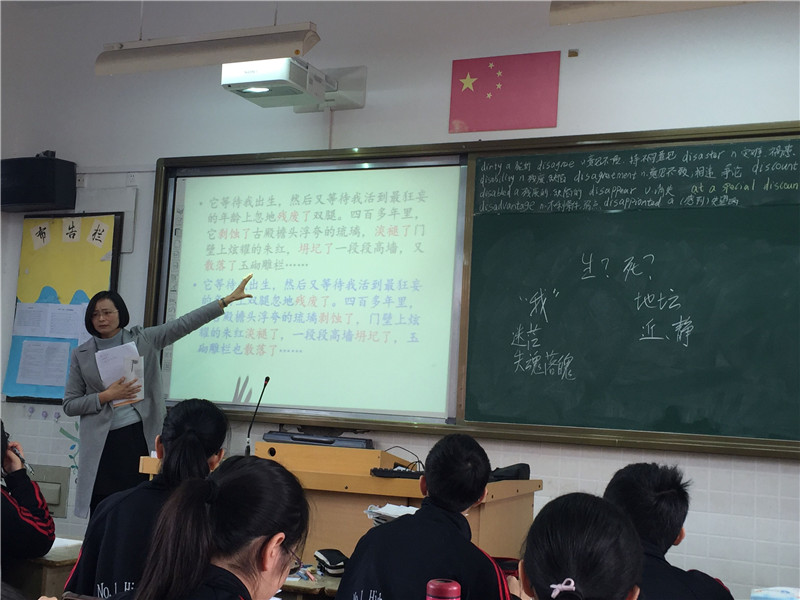 布告栏
它等待我出生，然后又等待我活到最狂妄
的年龄上忽地残废了双腿。四百多年里，
它剥蚀了古殿檐头浮夸的琉璃，淡褪了门
壁上炫耀的朱红，坍圮了一段段高墙，又
散落了玉砌雕栏……
它等待我出生，然后又等待我活到最狂妄
上双腿忽地残废了。四百多年里，
殿檐头浮夸的琉璃剥蚀了，门壁上炫
耀的朱红淡褪了，一段段高墙坍圮了，玉
砌雕栏也散落了……
dirty a 脏的 disagree v 意见不一致 disaster n 灾难
disability n disagreement n 意见不一致 争论 discount
disabled a 残疾的 disappear v 消失 at a special discount
disadvantage n disappointed a
生？死？
“我” 地坛
迷茫 近、静
失魂落魄
No.1 Hi
No.1 Hi